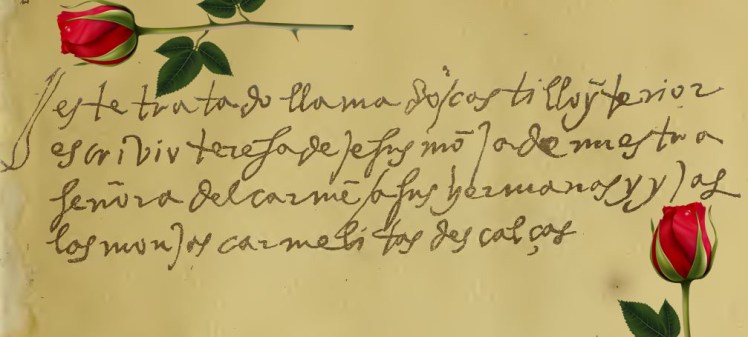 este tratado llamado / castillo ȳterior
escrivio teresa de jesus mō / ja de nuestra
señora del carmē / a sus hermanas y yjas
las monjas carmelitas descalças